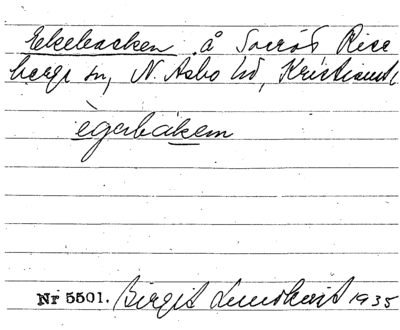 Ekebacken å Sorröd Rise
berga sn, N. Åsbo hd, Kristianst.
ègabàkem
Nr 5501. Birgit Lundkvist 1935